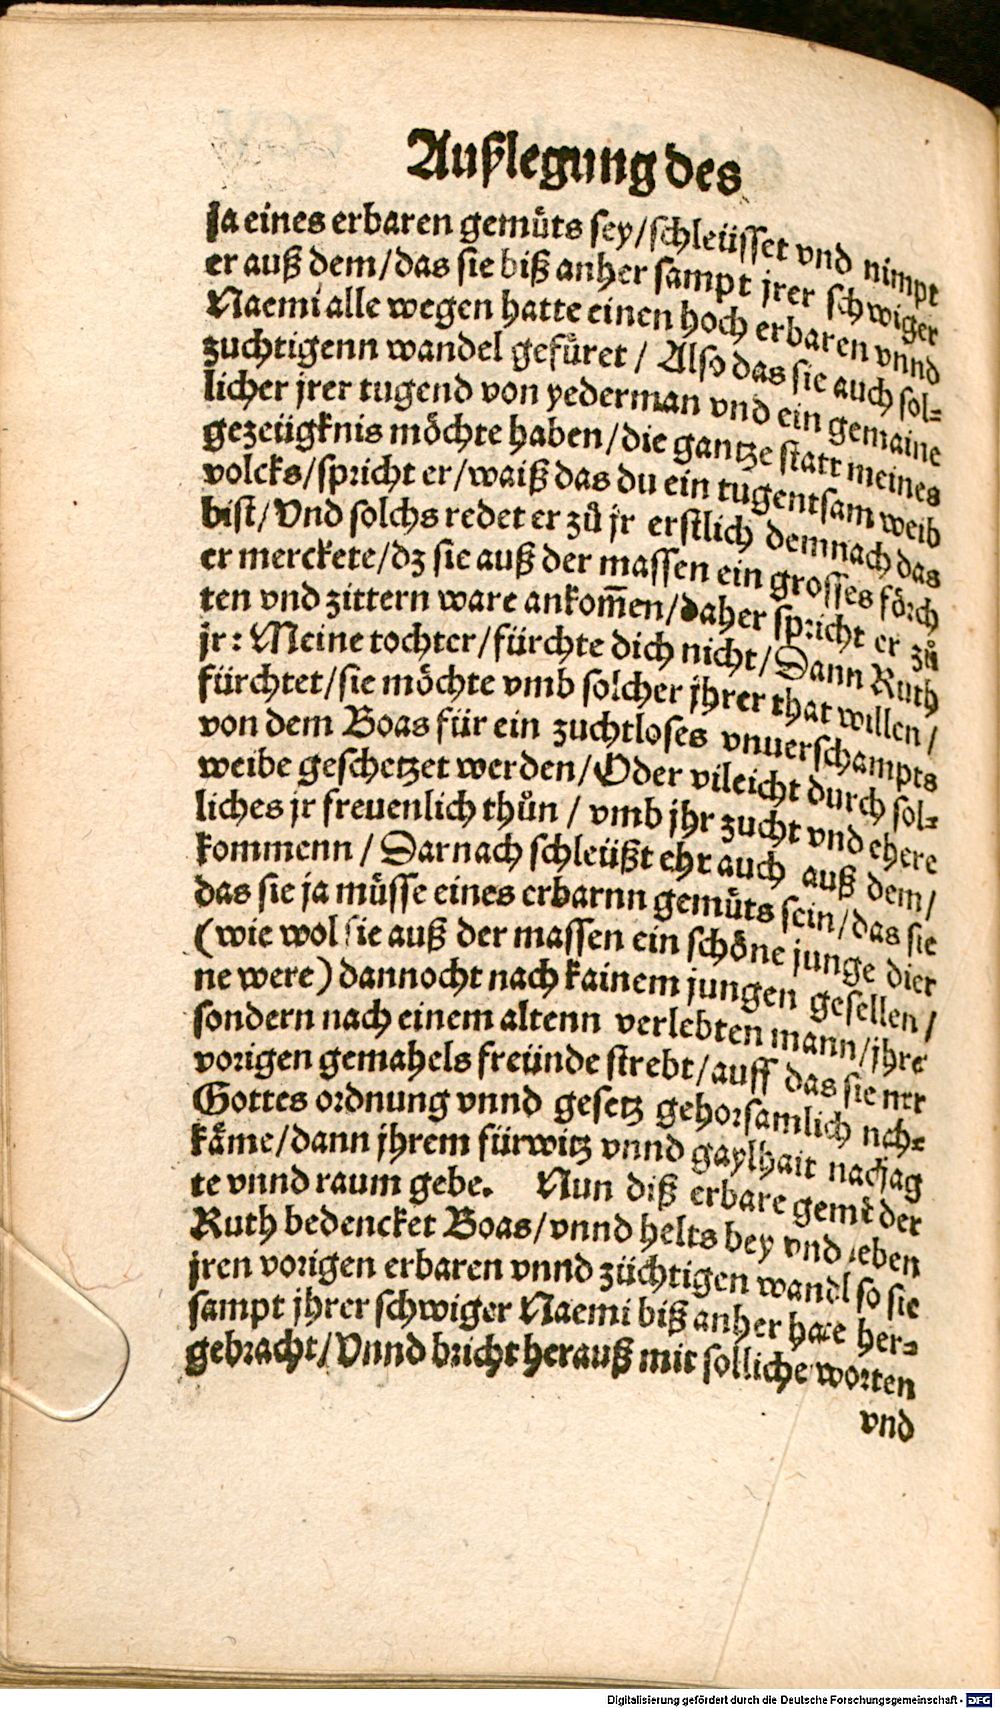 Außlegung des
ja eines erbaren gemuͤts sey/schleüsset vnd nimpt
er auß dem/das sie biß anher sampt jrer schwiger
Naemi alle wegen hatte einen hoch erbaren vnnd
zuchtigenn wandel gefuͤret / Also das sie auch sol-
licher jrer tugend von yederman vnd ein gemaine
gezeügknis moͤchte haben/die gantze statt meines
volcks/spricht er/waiß das du ein tugentsam weib
bist/Vnd solchs redet er zuͦ jr erstlich demnach das
er merckete/dz sie auß der massen ein grosses foͤrch
ten vnd zittern ware ankom̃en/daher spricht er zuͦ
jr: Meine tochter/fürchte dich nicht/Dann Ruth
fürchtet/sie moͤchte vmb solcher jhrer that willen/
von dem Boas für ein zuchtloses vnuerschampts
weibe geschetzet werden/Oder vileicht durch sol-
liches jr freuenlich thuͦn / vmb jhr zucht vnd ehere
kommenn / Darnach schleüßt ehr auch auß dem/
das sie ja muͤsse eines erbarnn gemuͤts sein/das sie
(wie wol sie auß der massen ein schoͤne junge dier
ne were) dannocht nach kainem jungen gesellen/
sondern nach einem altenn verlebten mann/jhre
vorigen gemahels freünde strebt/auff das sie
Gottes ordnung vnnd gesetz gehorsamlich nach-
kaͤme/dann jhrem fürwitz vnnd gaylhait nachjag
te vnnd raum gebe. Nun diß erbare gemuͤt der
Ruth bedencket Boas/vnnd helts bey vnd neben
jren vorigen erbaren vnnd züchtigen wandl so sie
sampt jhrer schwiger Naemi biß anher hate her-
gebracht/Vnnd bricht herauß mit solliche worten
vnd
Digitalisierung gefördert durch die Deutsche Forschungsgemeinschaft - DFG